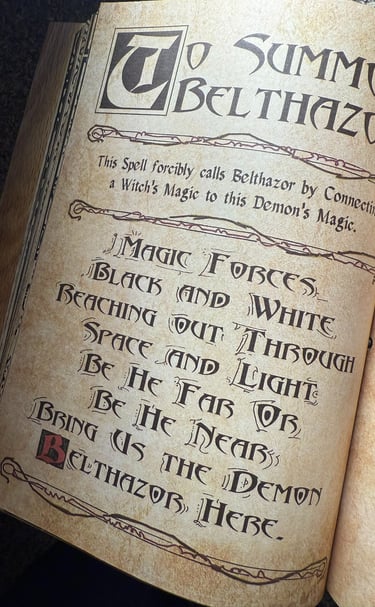 To Summ
Belthazo
This Spell forcibly calls Belthazor by Connectin
a Witch's Magic to this Demon's Magic.
Magic Forces
Black and White
Reaching out Through
Space and Light
Be He Far Or
Be He Near
Bring Us the Demon
Belthazor Here.